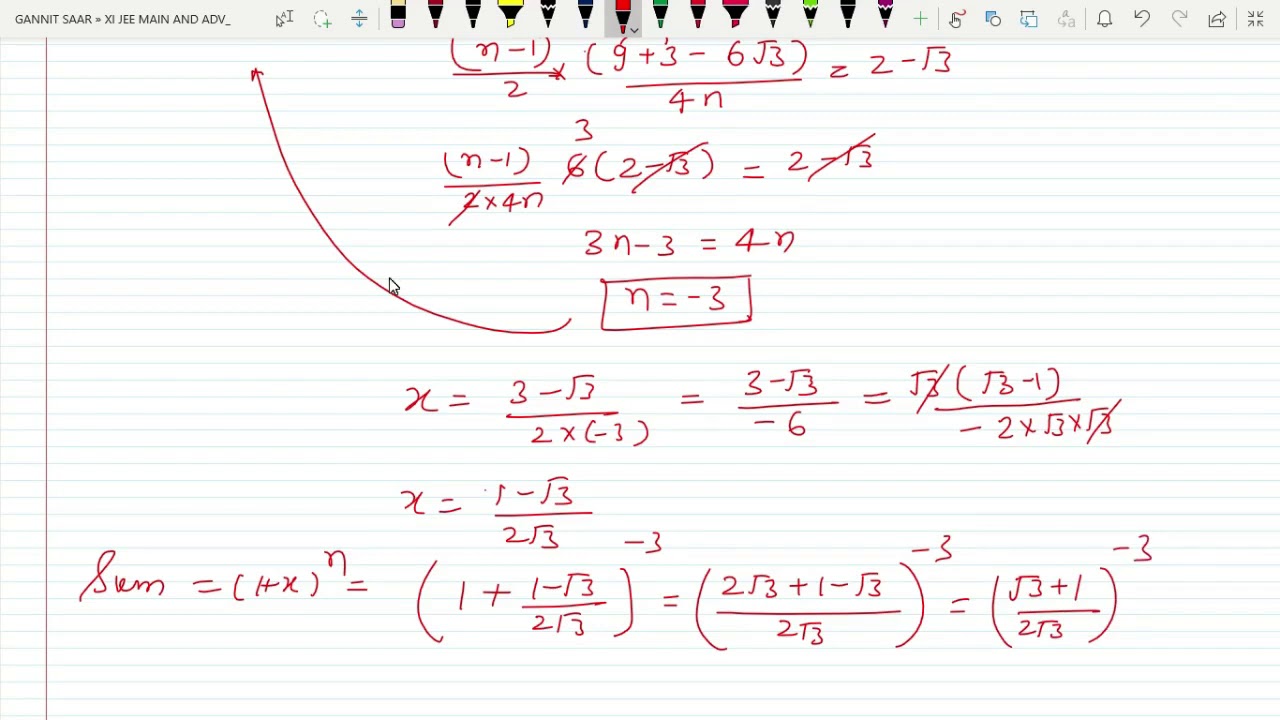 GANNIT SAAR » XI JEE MAIN AND ADV_
(n-1)/2 × (9+3-6√3)/4n = 2-√3
3
(n-1)/(2×4n) 6(2-√3) = 2-√3
3n-3 = 4n
n = -3
x = (3-√3)/(2×(-3)) = (3-√3)/-6 = √3(√3-1)/(-2×√3×√3)
x = (1-√3)/2√3
Sum = (1+x)^n = (1 + (1-√3)/2√3)^-3 = ((2√3+1-√3)/2√3)^-3 = ((√3+1)/2√3)^-3